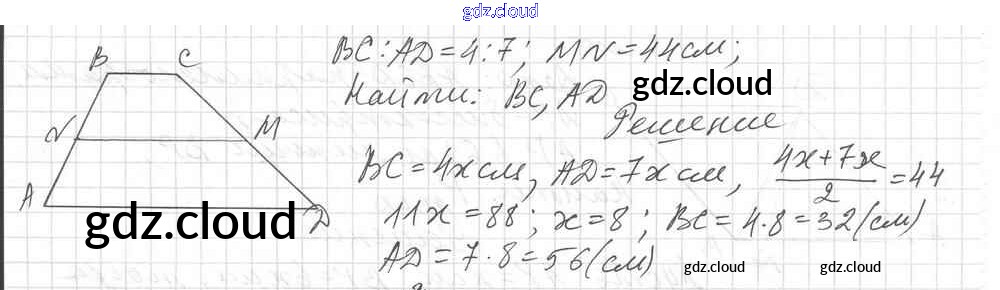 gdz.cloud
BC:AD=4:7; MN=44см;
Найти: BC, AD
gdz.cloud
Решение
BC=4x см, AD=7x см, (4x+7x)/2=44
11x=88; x=8; BC=4·8=32(см)
AD=7·8=56(см)
B C
N M
A D
gdz.cloud
gdz.cloud gdz.cloud